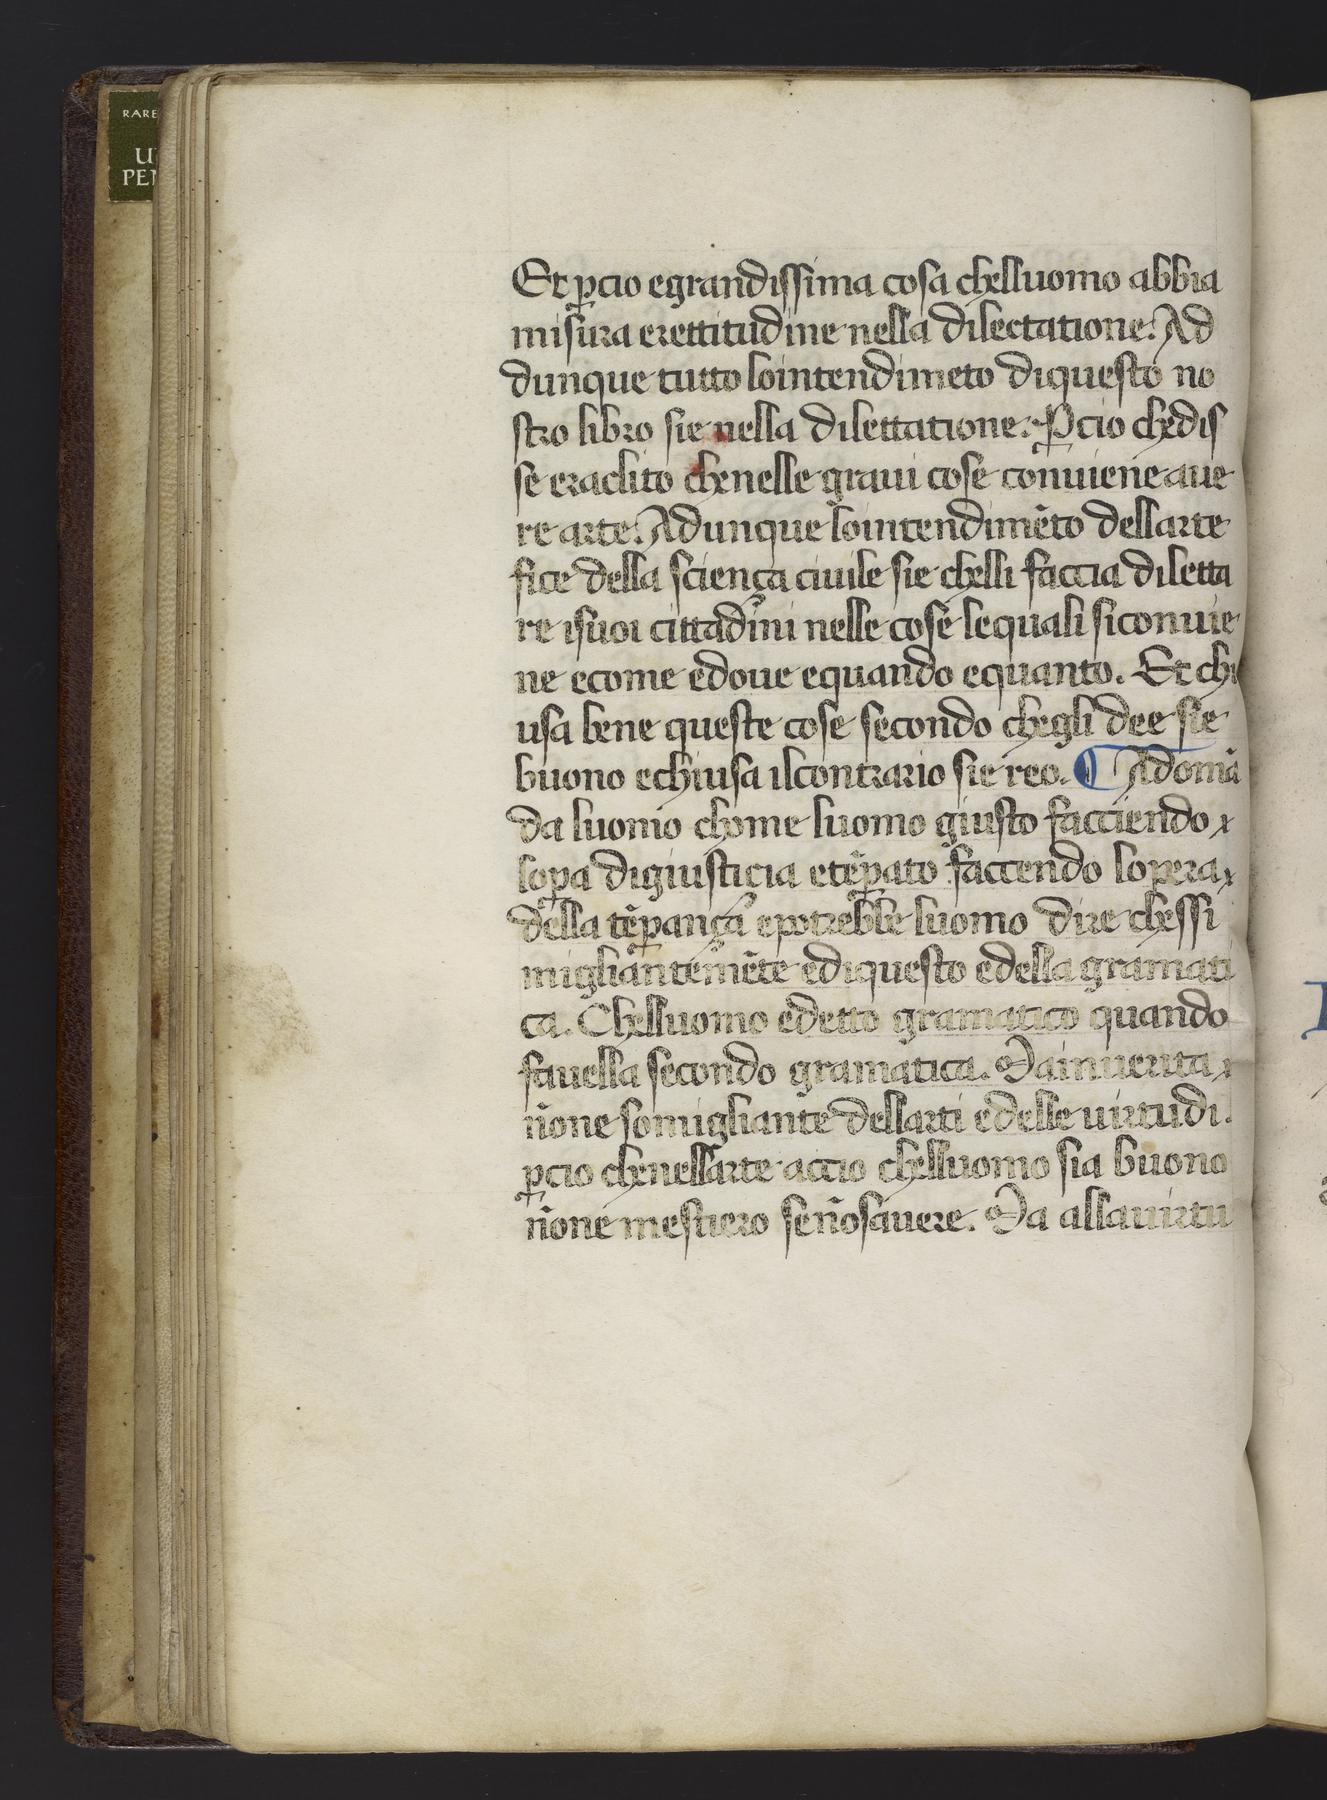 RARE
U
PEN
Et ꝑcio egrandissima cosa chelluomo abbia
misura erettitudine nella dilectatione. Ad
dunque tutto lointendimeto diquesto no
stro libro sie nella dilettatione. Ꝑcio chedis
se eraclito chenelle graui cose conuiene aue
re arte. Adunque lointendimēto dellarte
fice della sciença ciuile sie chelli faccia diletta
re isuoi cittadini nelle cose lequali siconuie
ne ecome edoue equando equanto. Et chi
usa bene queste cose secondo chegli dee sie
buono echiusa ilcontrario sie reo. Adomā
da luomo chome luomo giusto facciendo
loꝑa digiusticia etēꝑato faccendo lopera
della tēꝑança epotrebbe luomo dire chessi
migliantemēte ediquesto edella gramati
ca. Chelluomo edetto gramatico quando
fauella secondo gramatica. Mainuerita
n̄one somigliante dellarti edelle uirtudi.
ꝑcio chenellarte accio chelluomo sia buono
n̄one mestiero sen̄osauere. Ma allauirtu